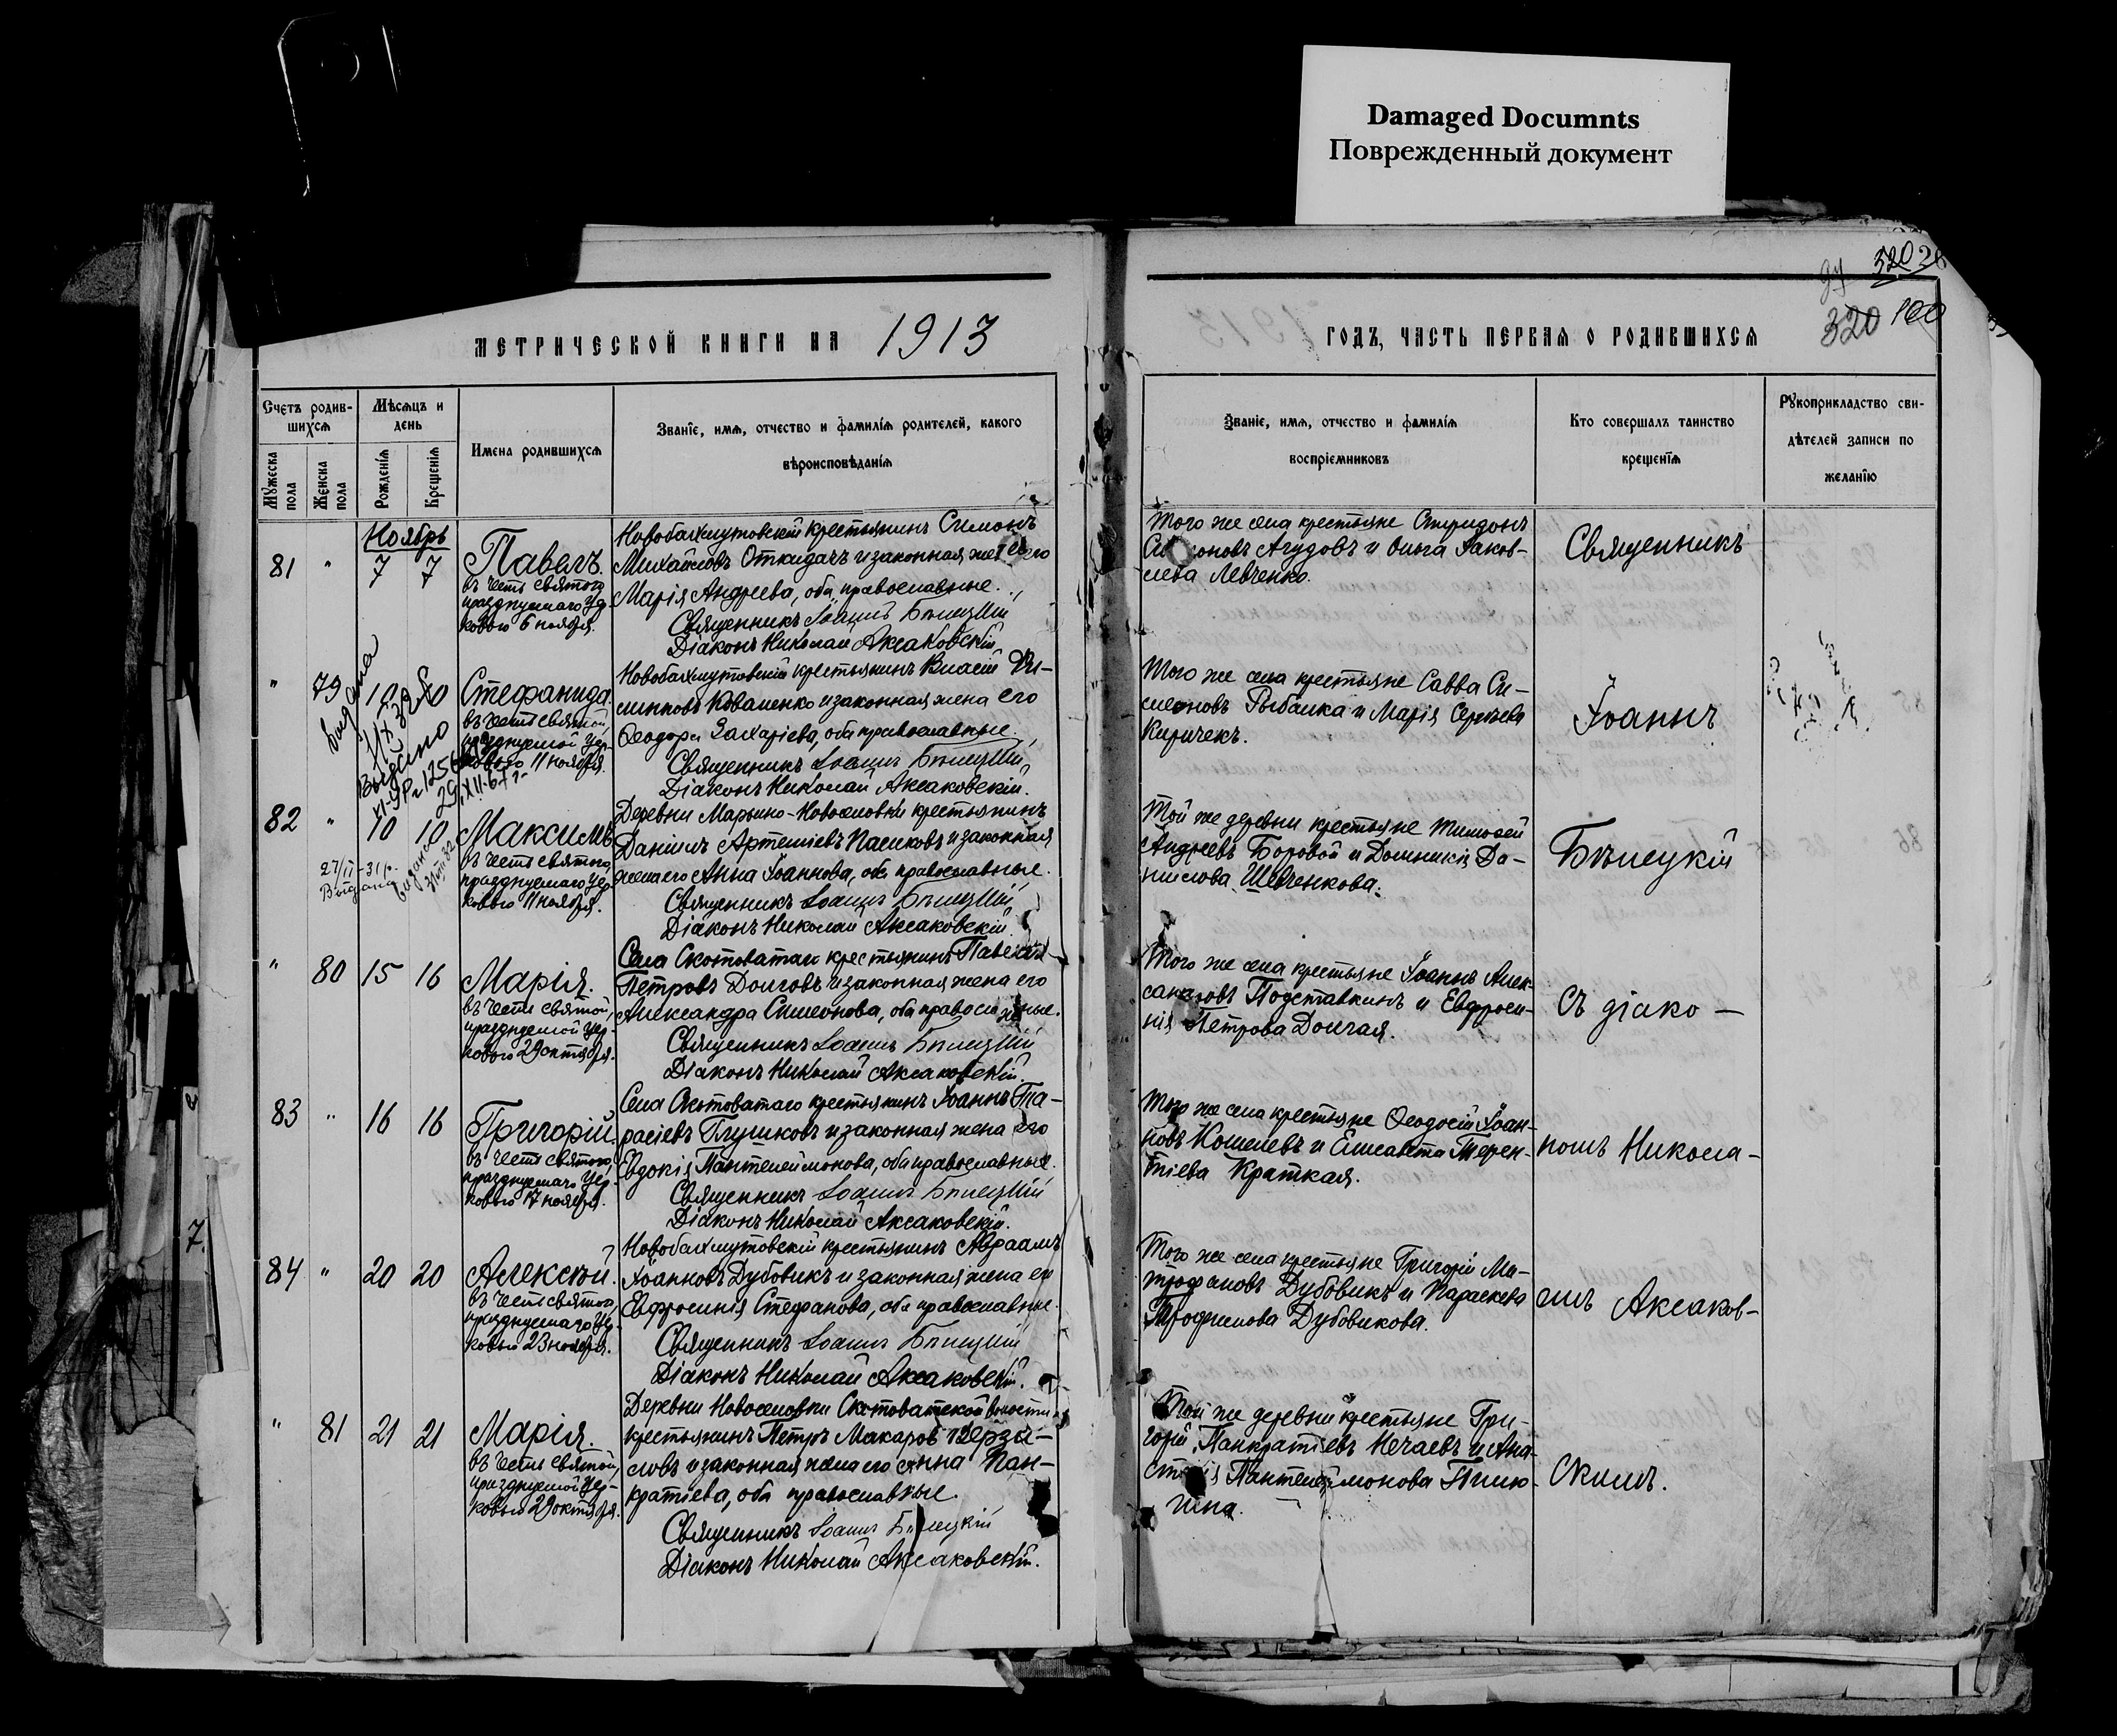 Damaged Documnts
Поврежденный документ
МЕТРИЧЕСКОЙ КНИГИ НА 1913
Счетъ родив-
шихся
Мужеска
пола
Женска
пола
Мѣсяцъ и
день
Рожденія
Крещенія
Имена родившихся
Званіе, имя, отчество и фамилія родителей, какого
вѣроисповѣданія
Ноябрь
81 " 7 7
Павелъ.
въ честь святого
празднуемаго Цер-
ковью 6 ноября.
Новобахмутовскій крестьянинъ Симонъ
Михайловъ Откидачъ и законная жена его
Марія Андреева, оба православные.
Священникъ Іоаннъ Бѣлецкій
Діаконъ Николай Аксаковскій
" 79 10 10
Стефанида.
въ честь святой,
празднуемой Цер-
ковью 11 ноября.
Новобахмутовскій крестьянинъ Власій
Коваленко и законная жена его
Ѳеодора Захаріева, оба православные.
Священникъ Іоаннъ Бѣлецкій
Діаконъ Николай Аксаковскій.
82 " 10 10
Максимъ
въ честь святого
празднуемаго Цер-
ковью 11 ноября.
27/II-31 р.
Выдана
Деревни Марьино-Новоселовки крестьянинъ
Даніилъ Артеміевъ Пасиковъ и законная
жена его Анна Іоаннова, оба православные.
Священникъ Іоаннъ Бѣлецкій
Діаконъ Николай Аксаковскій.
" 80 15 16
Марія.
въ честь святой,
празднуемой Цер-
ковью 29 октября.
Села Скотоватаго крестьянинъ Павелъ
Петровъ Долговъ и законная жена его
Александра Симеонова, оба православные.
Священникъ Іоаннъ Бѣлецкій
Діаконъ Николай Аксаковскій.
83 " 16 16
Григорій.
въ честь святого,
празднуемаго Цер-
ковью 17 ноября.
Села Скотоватаго крестьянинъ Іоаннъ Та-
расіевъ Глушковъ и законная жена его
Евдокія Пантелеймонова, оба православные.
Священникъ Іоаннъ Бѣлецкій
Діаконъ Николай Аксаковскій.
84 " 20 20
Алексѣй.
въ честь святого,
празднуемаго Цер-
ковью 23 ноября.
Новобахмутовскій крестьянинъ Авраамъ
Іоанновъ Дубовикъ и законная жена его
Евфросинія Стефанова, оба православные.
Священникъ Іоаннъ Бѣлецкій
Діаконъ Николай Аксаковскій.
" 81 21 21
Марія.
въ честь святой,
празднуемой Цер-
ковью 29 октября.
Деревни Новоселовки Скотоватской волости
крестьянинъ Петръ Макаровъ
и законная жена его Анна Пан-
кратіева, оба православные.
Священникъ Іоаннъ Бѣлецкій
Діаконъ Николай Аксаковскій.
ГОДЪ, ЧАСТЬ ПЕРВАЯ О РОДИВШИХСЯ
320
100
Званіе, имя, отчество и фамилія
воспріемниковъ
Кто совершалъ таинство
крещенія
Рукоприкладство сви-
дѣтелей записи по
желанію
Того же села крестьяне Спиридонъ
Симоновъ Агудовъ и Ольга Іаков-
лева Левченко.
Того же села крестьяне Савва Си-
меоновъ Рыбалка и Марія Сергѣева
Киричекъ.
Той же деревни крестьяне Тимоѳей
Андреевъ Боровой и Домникія Да-
ніилова Шевченкова.
Того же села крестьяне Іоаннъ Алек-
сандровъ Подставкинъ и Евфроси-
нія Петрова Долгая.
Того же села крестьяне Ѳеодосій Іоан-
новъ Кошелевъ и Елисавета Терен-
тіева Краткая.
Того же села крестьяне Григорій Ми-
трофановъ Дубовикъ и Параскева
Трофимова Дубовикова.
Той же деревни крестьяне Гри-
горій Панкратіевъ Нечаевъ и Ана-
стасія Пантелеймонова
Священникъ
Іоаннъ
Бѣлецкій
съ діако-
номъ Никола-
емъ Аксаков-
скимъ.